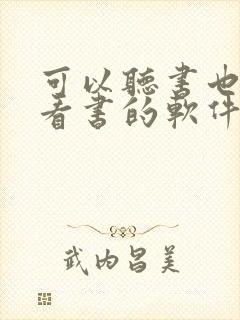 可以聽書也
看書的軟件
武内昌美